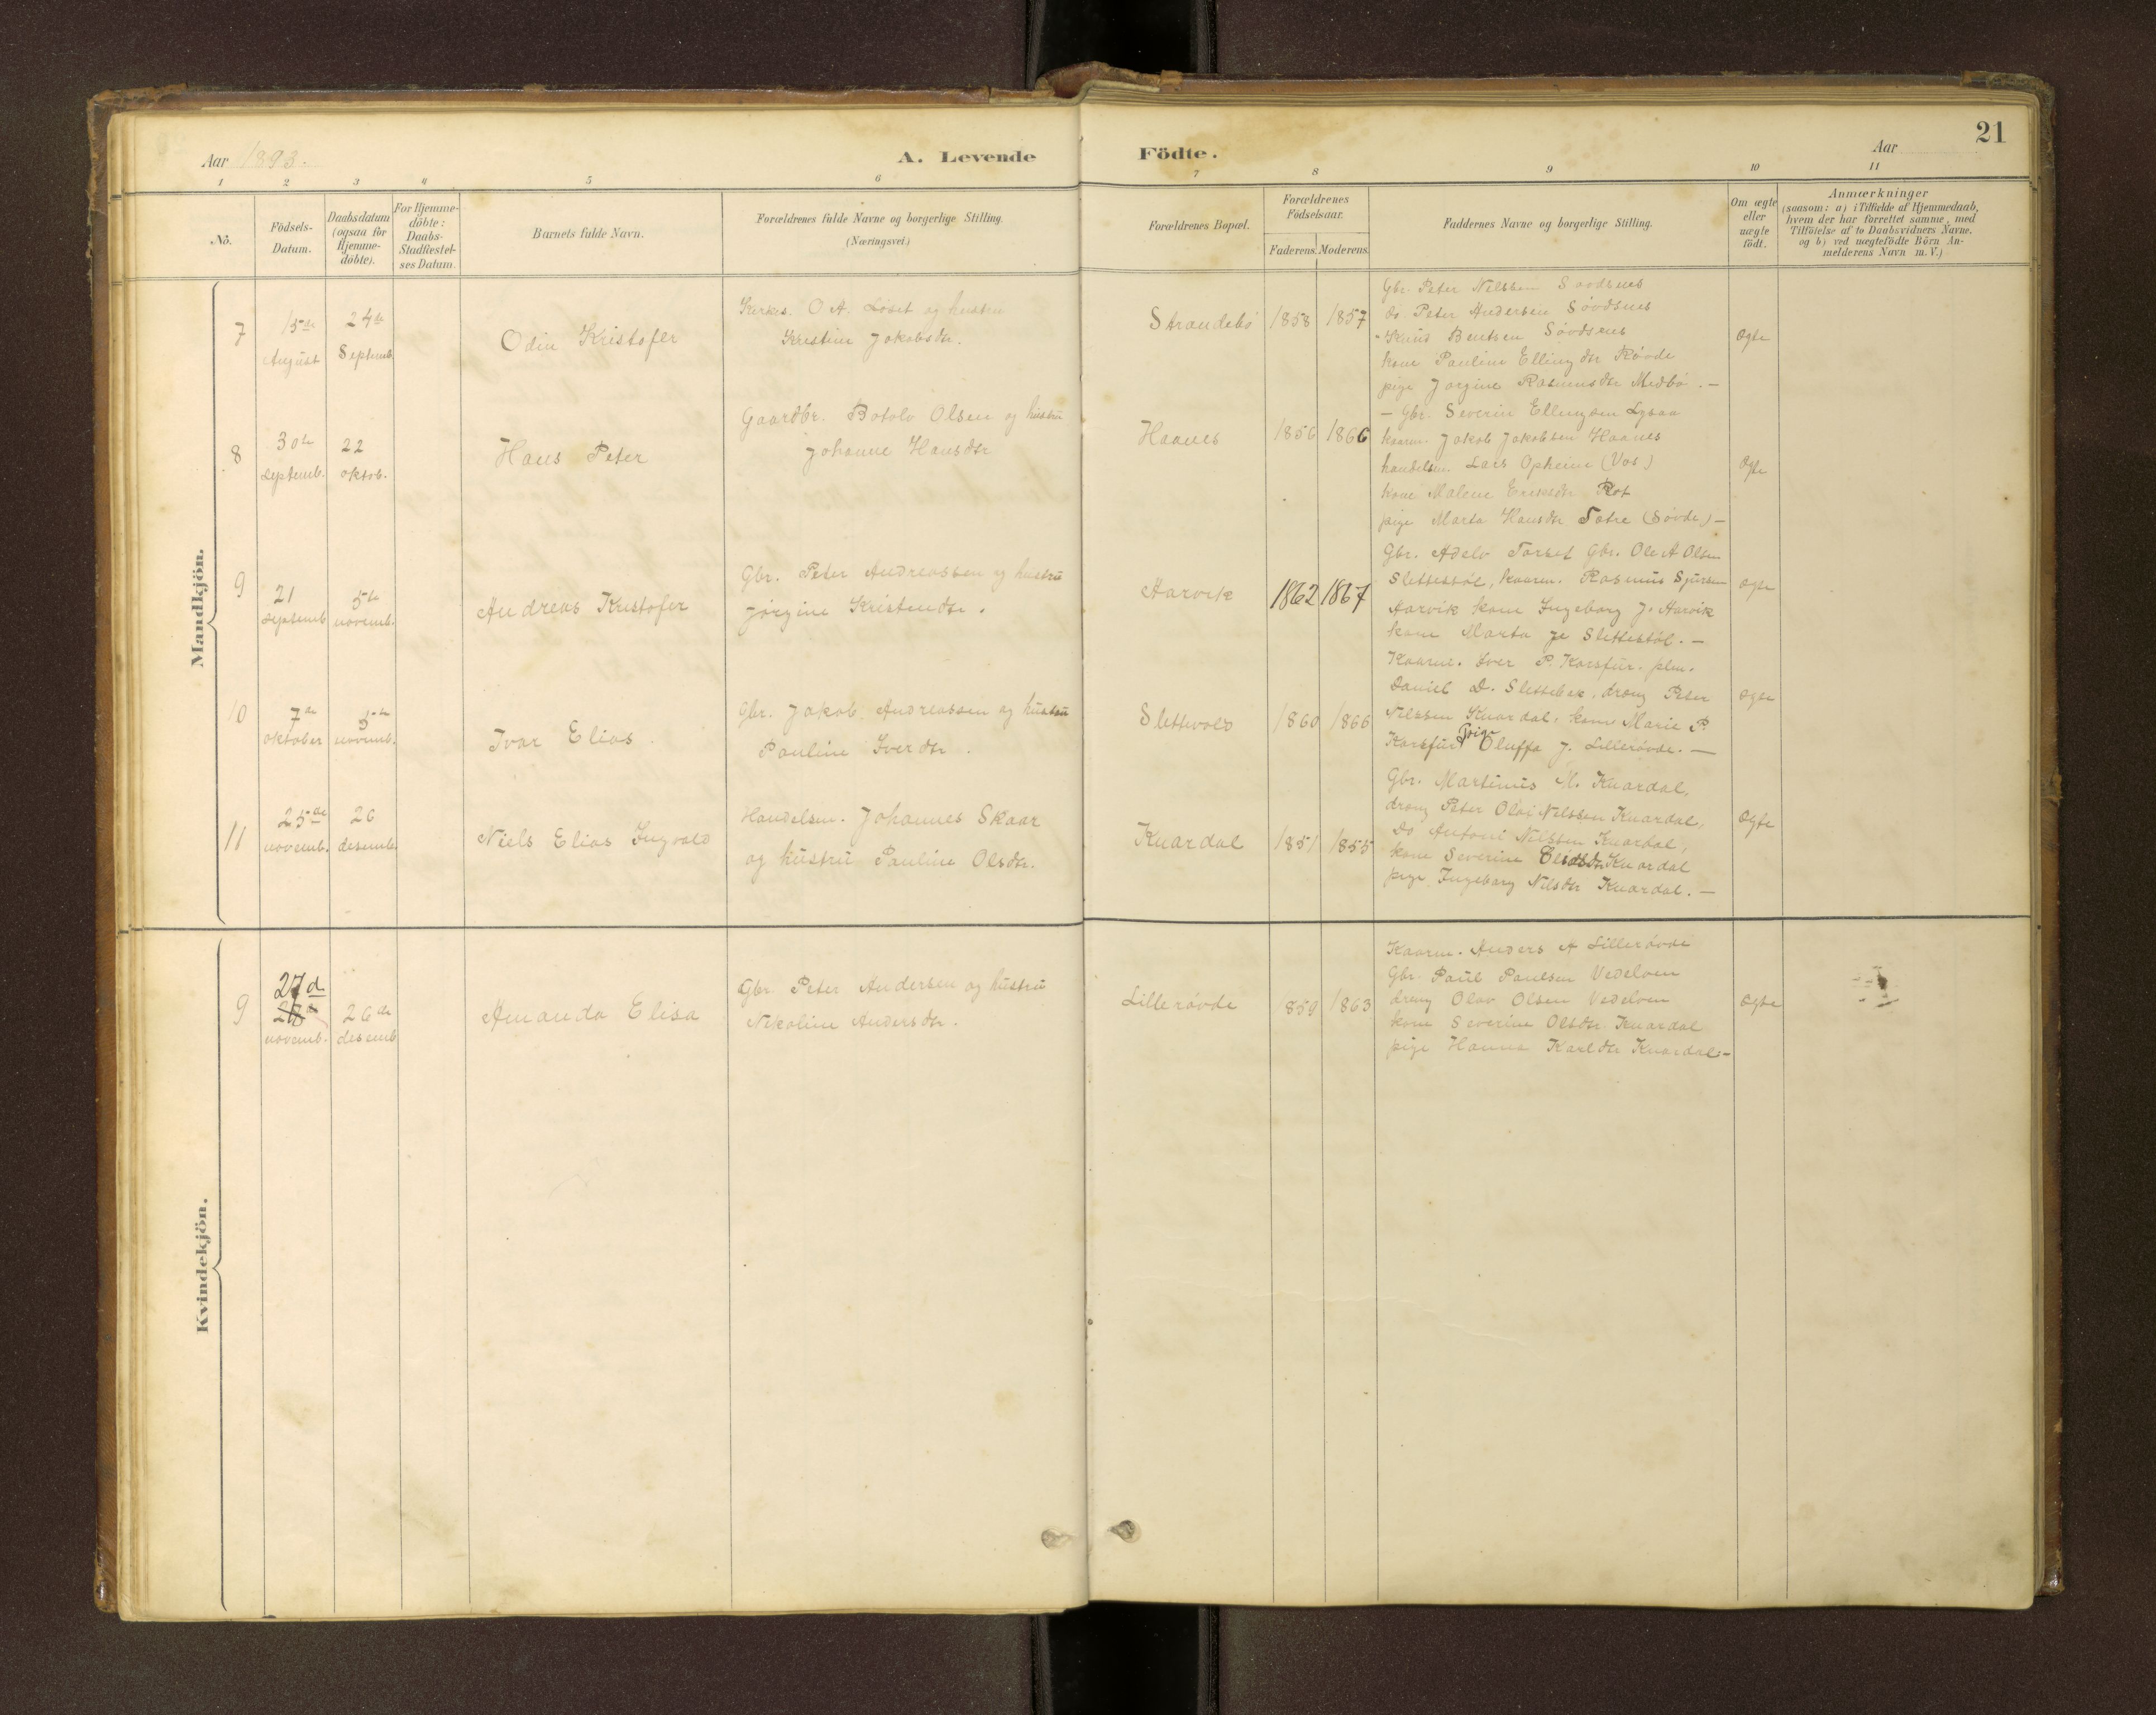 21
Aar 1893.
A. Levende Födte.
Aar
1 2 3 4 5 6 7 8 9 10 11
No.
Födsels-
Datum.
Daabsdatum
(ogsaa for
Hjemme-
döbte).
For Hjemme-
döbte:
Daabs-
Stadfæstel-
ses Datum.
Barnets fulde Navn.
Forældrenes fulde Navne og borgerlige Stilling.
(Næringsvei.)
Forældrenes Bopæl.
Forældrenes
Födselsaar.
Faderens. Moderens.
Faddernes Navne og borgerlige Stilling.
Om ægte
eller
uægte
födt.
Anmærkninger
(saasom: a) i Tilfælde af Hjemmedaab,
hvem der har forrettet samme, med
Tilföielse af to Daabsvidners Navne.
og b) ved uægtefödte Börn An-
melderens Navn m. V.)
Mandkjön.
7
15de
August
24de
Septemb.
Odin Kristofer
Kirkes. O A. Löset og hustru
Kristine Jakobsdtr.
Strandebö
1858
1857
Gbr. Peter Nilssen Sövdsnes
do. Peter Andersen Sövdsnes
- Knud Bentsen Sövdsnes
kone Pauline Ellingsdtr Rövde
pige Jorgine Rasmusdtr Medbö. —
ægte
8
30te
septemb.
22
oktob.
Hans Peter
Gaardbr. Botolv Olsen og hustru
Johanne Hansdtr
Haanes
1856
1866
— Gbr. Severin Ellingsen Lysaa
kaarm. Jakob Jakobsen Haanes
handelsm. Lars Opheim (Vos)
kone Malene Eriksdtr Rot
pige Marta Hansdtr Sætre (Sövde) —
ægte
9
21
septemb
5te
novemb.
Andreas Kristofer
Gbr. Peter Andreassen og hustru
Jörgine Kristendtr.
Aarvik
1862
1867
Gbr. Adelv Torset Gbr. Ole A Olsen
Slettestöl, kaarm. Rasmus Sjursen
Aarvik kone Ingeborg J. Aarvik
kone Marta Slettestöl. —
ægte
10
7de
oktober
5te
novemb.
Ivar Elias
Gbr. Jakob Andreassen og hustru
Pauline Iverdtr.
Slettevold
1860
1866
Kaarm. Iver P. Korsfur. plm.
Daniel D. Slettebak, dreng Peter
Nilssen Knardal, kone Marie P.
Korsfur Pige Oluffa J. Lillerövde. —
ægte
11
25de
novemb.
26
desemb.
Niels Elias Ingvald
Handelsm. Johannes Skaar
og hustru Pauline Olsdtr.
Knardal
1851
1855
Gbr. Martinus M. Knardal,
dreng Peter Olai Nilssen Knardal,
Do Antoni Nilssen Knardal,
kone Severine Olsdtr Knardal
pige Ingeborg Nilsdtr Knardal. —
ægte
Kvindekjön.
9
27d
novemb.
26de
desemb
Amanda Elisa
Gbr. Peter Andersen og hustru
Nikoline Andersdtr.
Lillerövde
1859
1863
Kaarm. Anders A Lillerövde
Gbr. Paul Paulsen Vedelven
dreng Olav Olsen Vedelven
kone Severine Olsdtr Knardal
pige Hanna Karldtr Knardal —
ægte